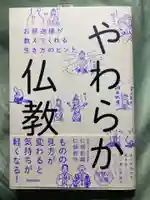 お釈迦様が
教えてくれる
生き方のヒント
やわらか
仏教
ものの
見方が
変わると
気持ちが
軽くなる!